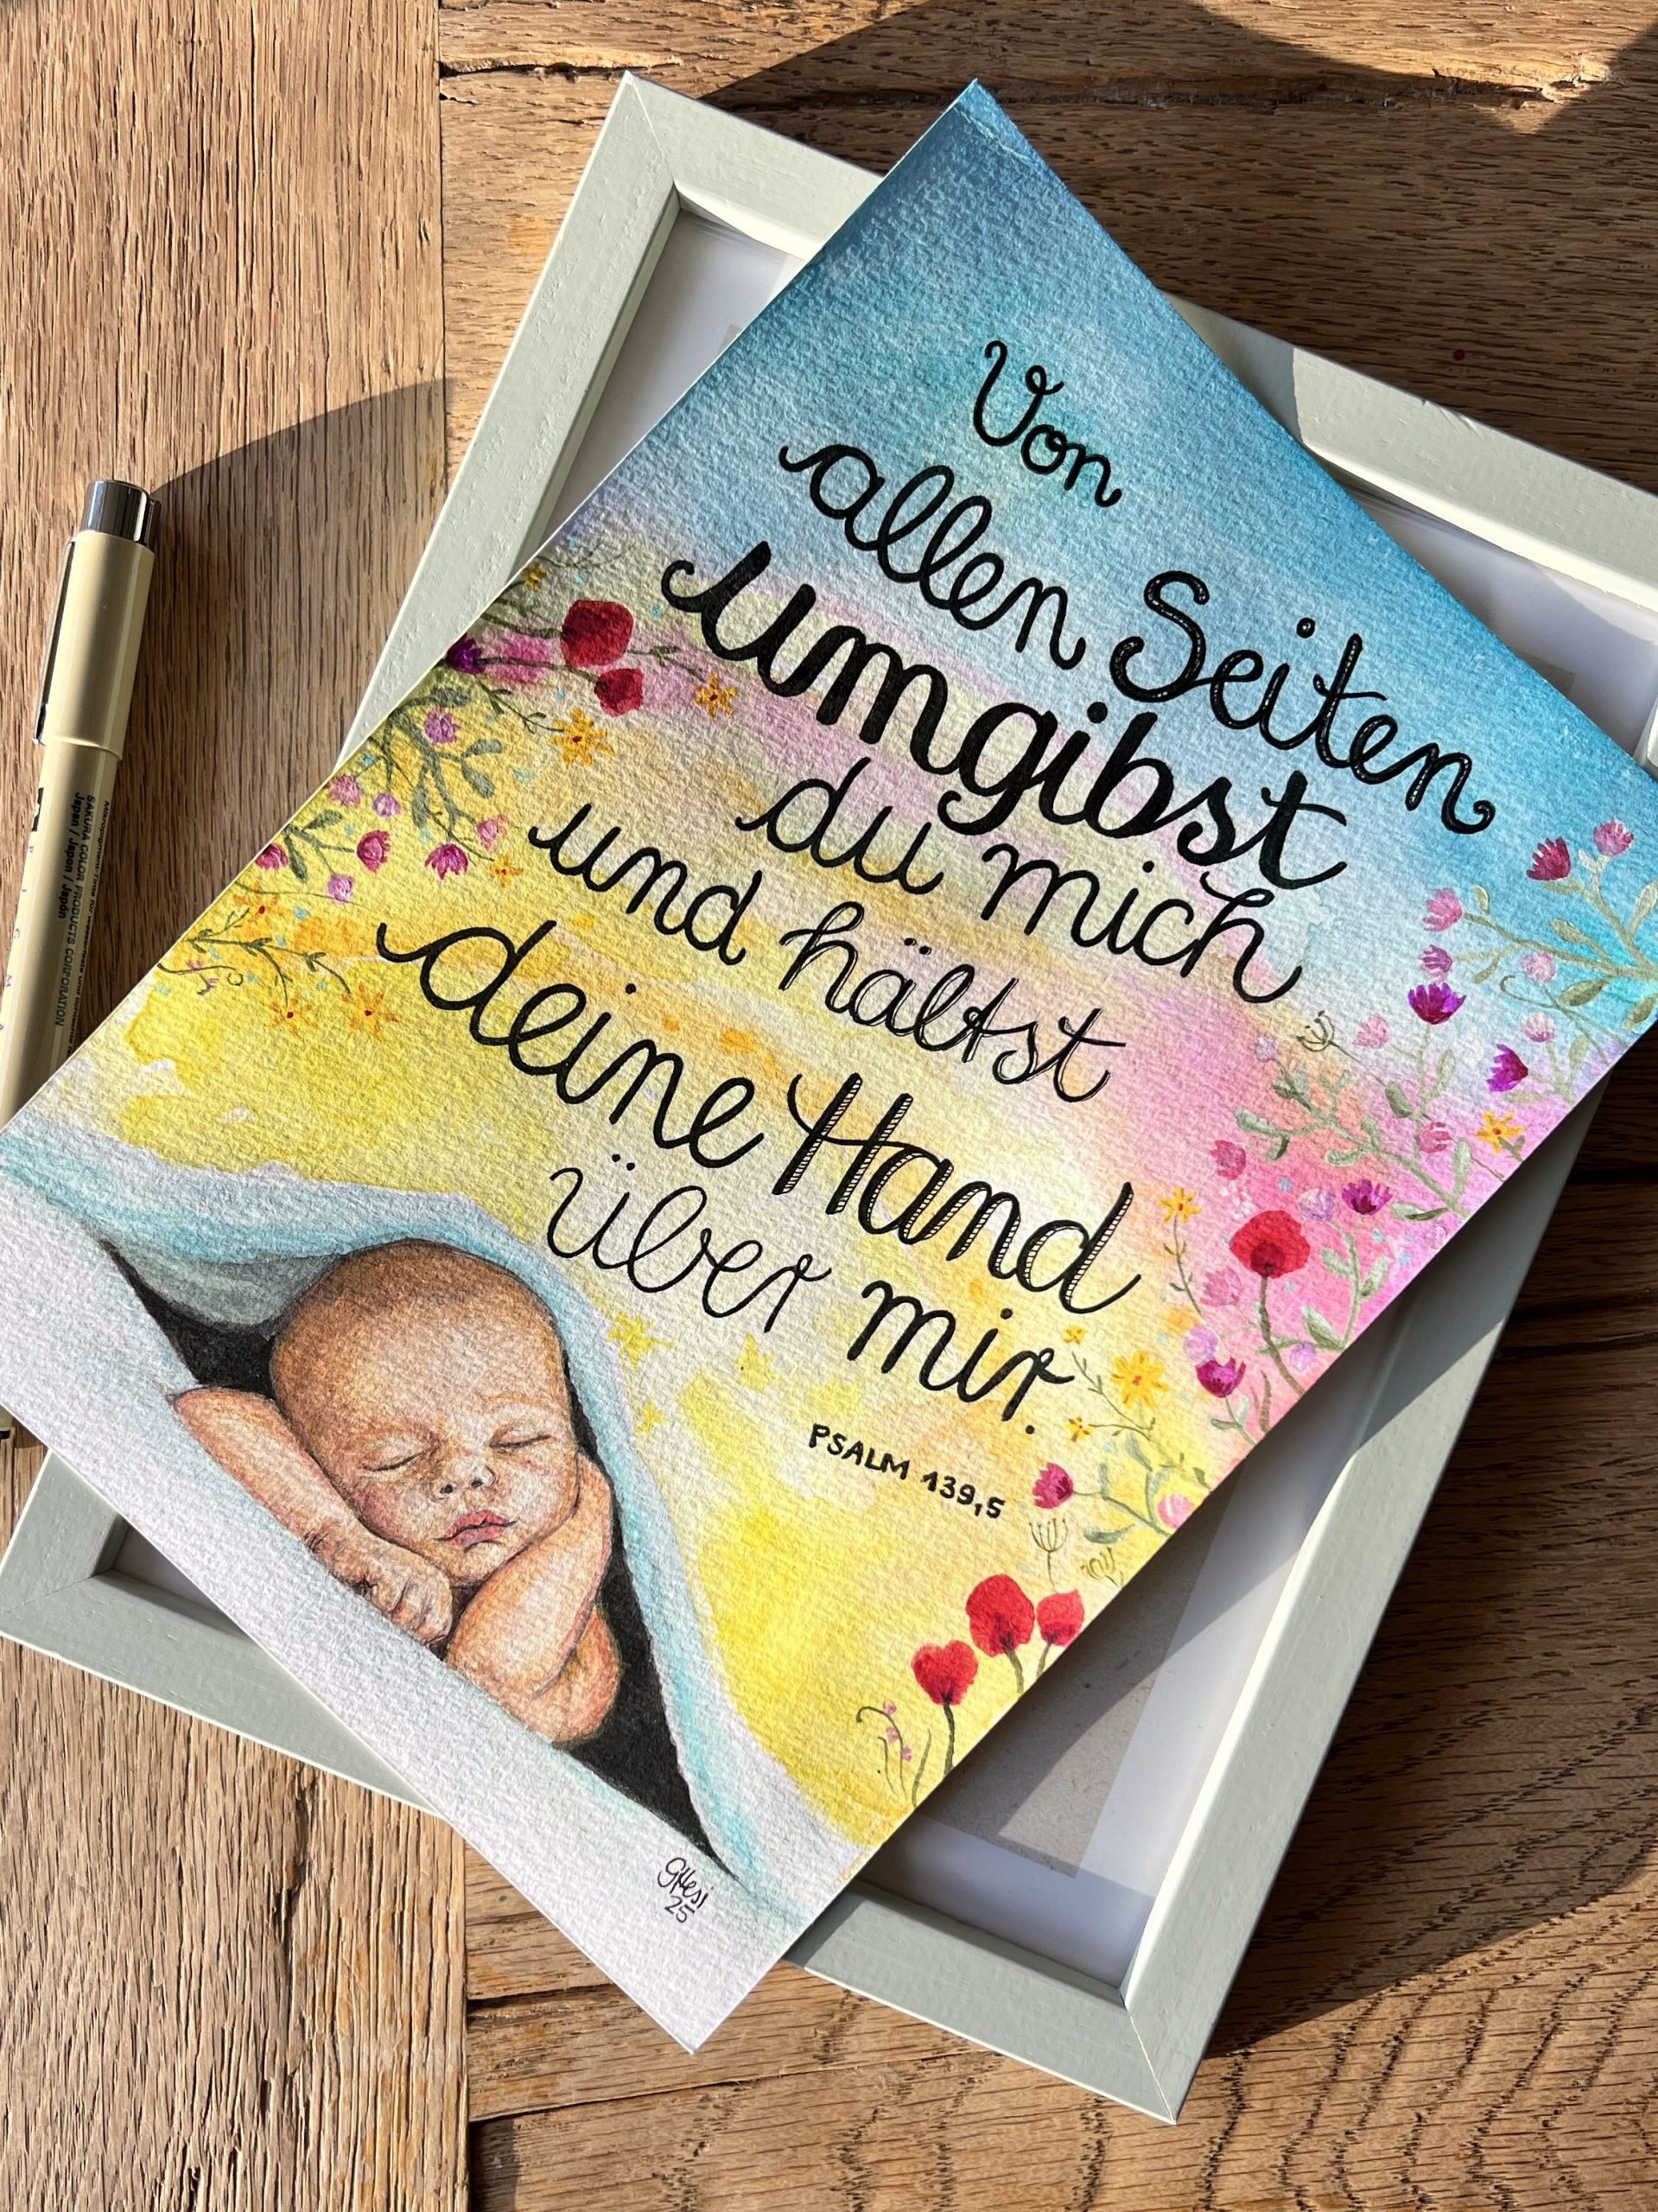 Von
allen Seiten
umgibst
du mich
und hältst
deine Hand
über mir.
PSALM 139,5
GHesi
25
SAKURA COLOR PRODUCTS CORPORATION
Japan / Japon / Japón